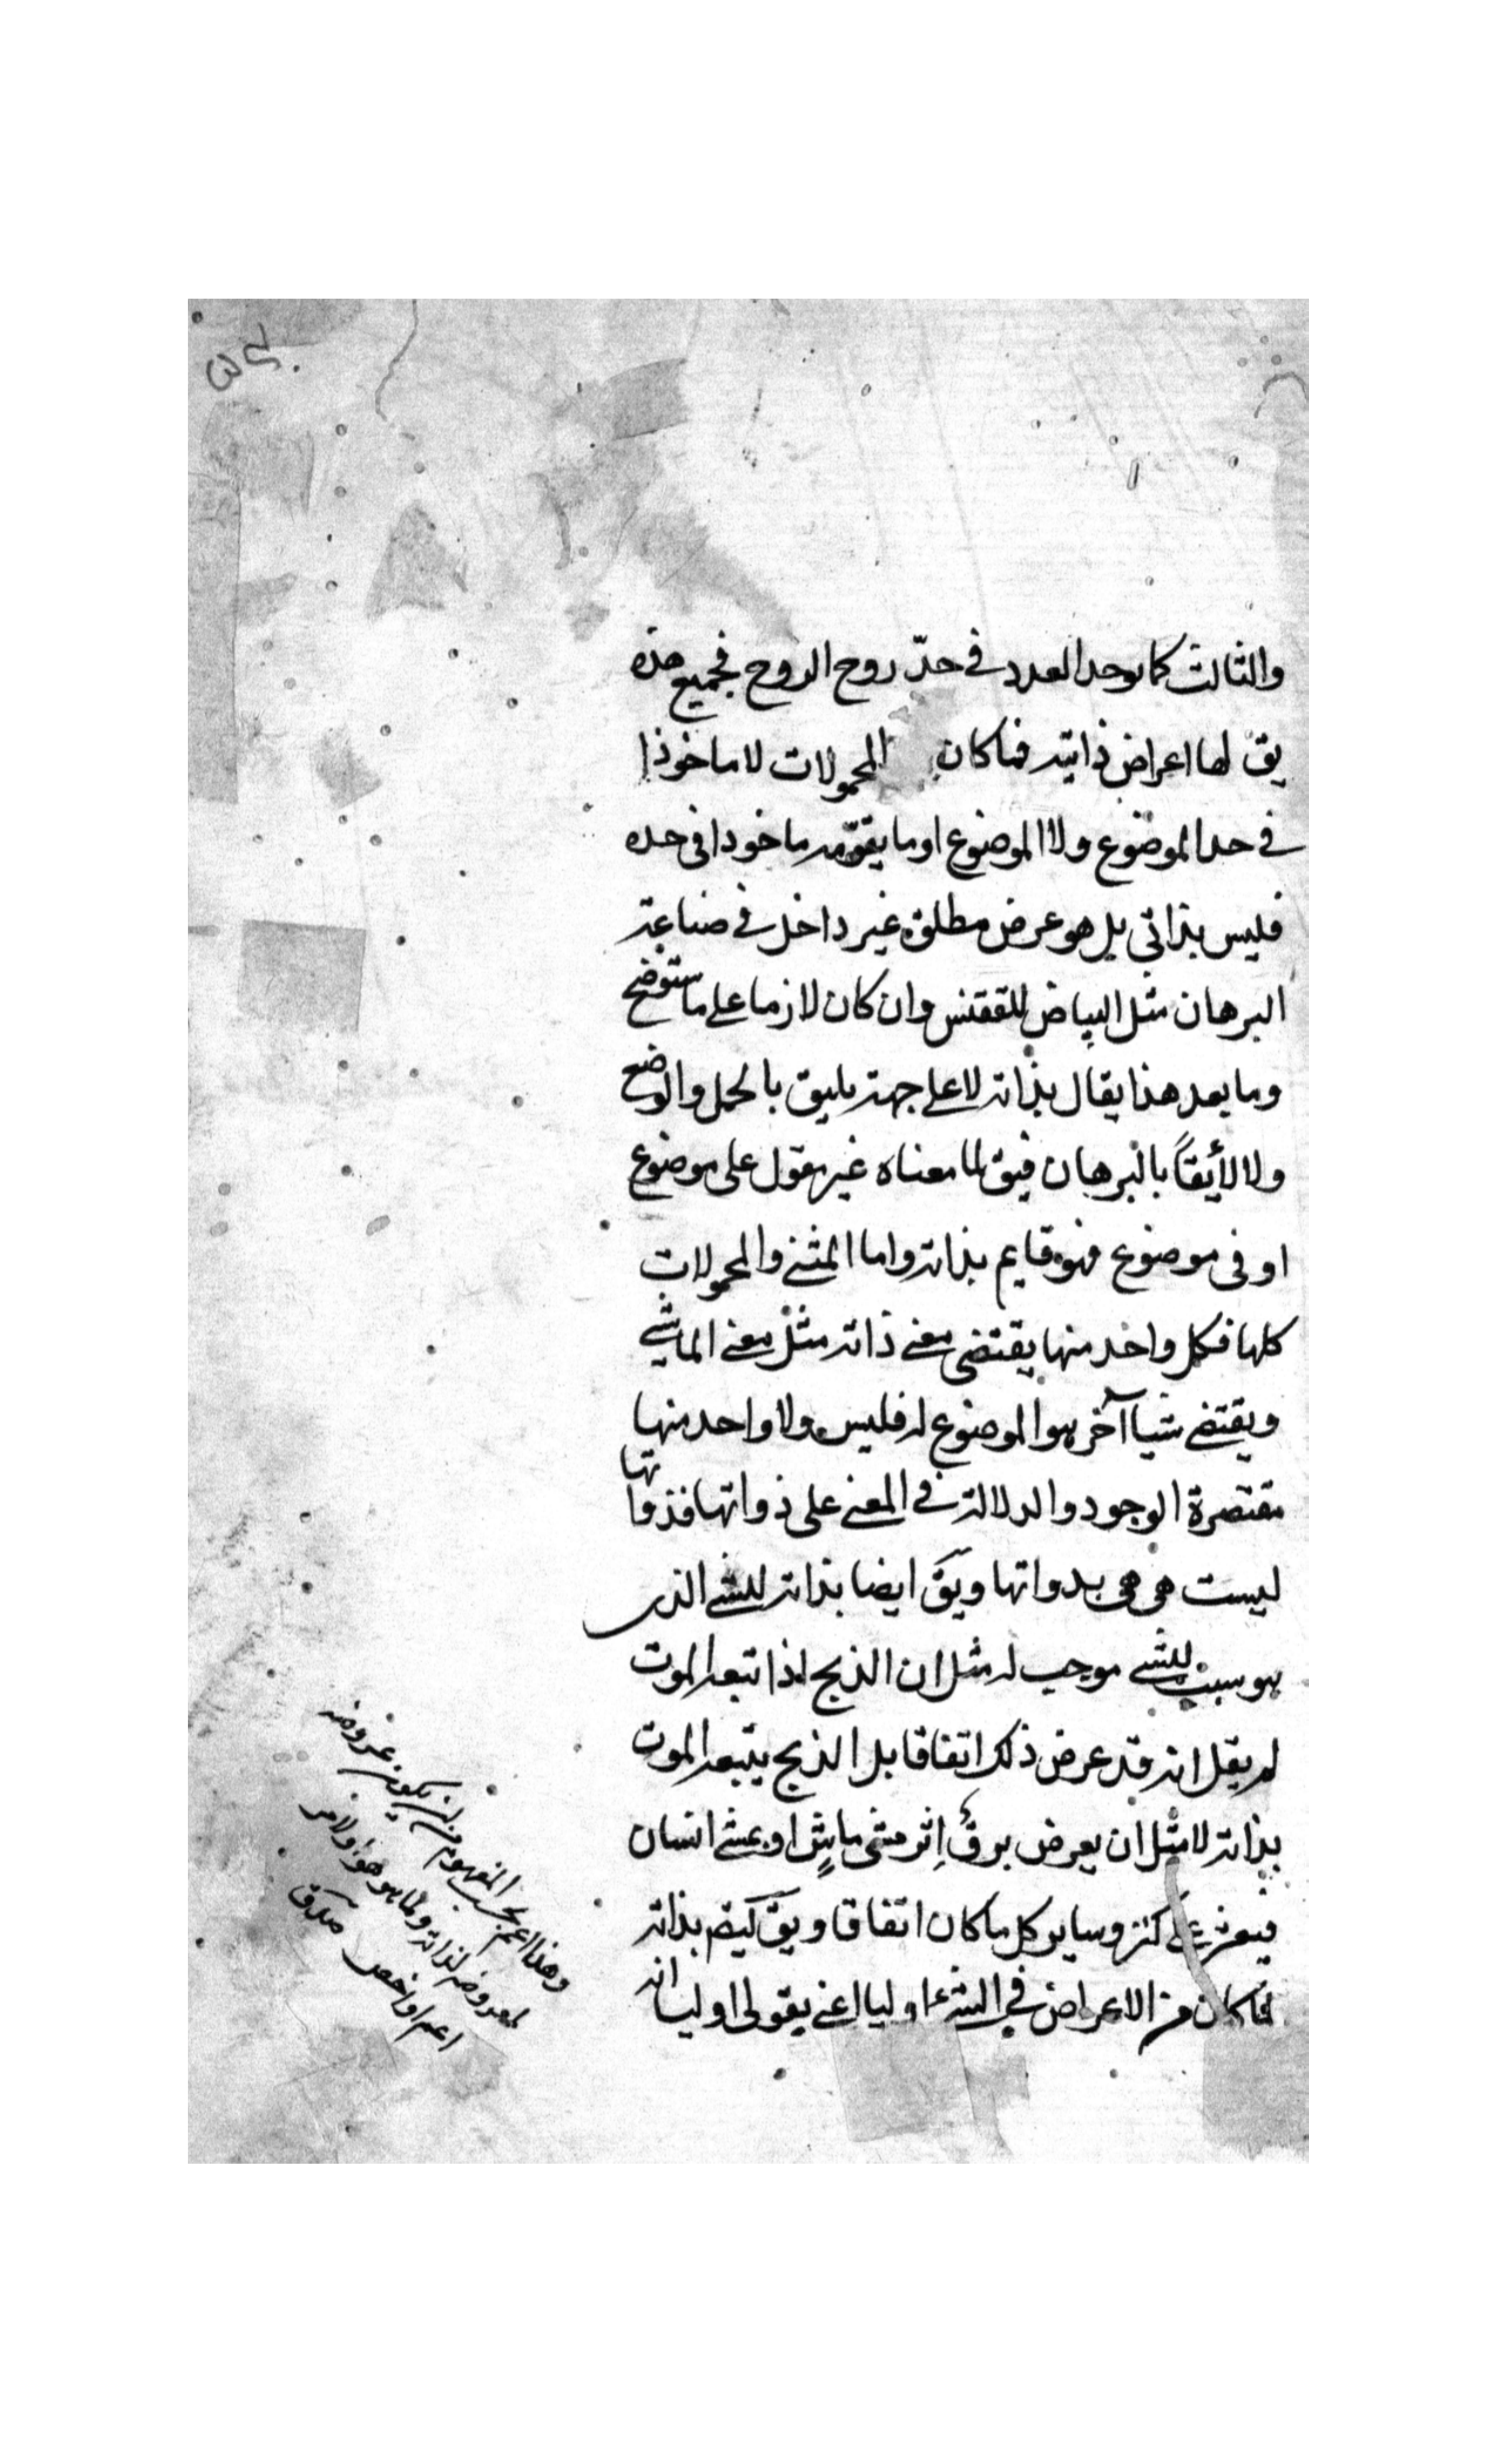 والثالث كما يوخد العدد في حدّ زوج الزوج فجميع هذه
يق لها اعراض ذاتية فما كان المحمولات لا ماخوذا
في حد الموضوع ولا الموضوع او ما يقوّمه ماخوذا في حده
فليس بذاتي بل هو عرض مطلق غير داخل في صناعة
البرهان مثل البياض للققنس وان كان لازما على ما ستوضح
وما بعد هذا يقال بذاته لا على جهة يليق بالحمل والوضع
ولا لأيقاً بالبرهان فيق لما معناه غير مقول على موضوع
او في موضوع فهو قايم بذاته واما المشى والمحمولات
كلها فكل واحد منها يقتضى معنى ذاته مثل معنى الماشى
ويقتضى شيا آخر هو الموضوع له فليس ولا واحد منها
مقتصرة الوجود والدلالة في المعنى على ذواتها فذواتها
ليست هي هي بذواتها ويق ايضا بذاته للشى الذى
هو سبب للشى موجب له مثل ان الذبح اذا تبعه الموت
لم يقل انه قد عرض ذلك اتفاقا بل الذبح يتبعه الموت
بذاته لا مثل ان يعرض برقٌ اثر مشى ماشٍ او يمشى انسان
فيعثر على كنز وساير كل ما كان اتفاقا ويق ايضا بذاته
لما كان من الاعراض في الشى اوليا اعنى بقولى اوليا انه
وهذا اعم بحسب المفهوم من ان يكون عروضه
لمعروضه لذاته ولما هو هو او لامر
اعم او اخص